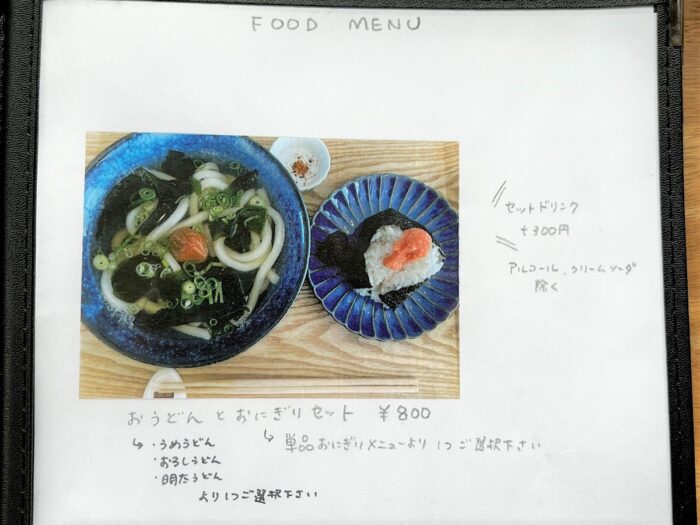 FOOD MENU
セットドリンク
+300円
アルコール、クリームソーダ
除く
おうどんとおにぎりセット ¥800
↳ ・うめうどん
・おろしうどん
・明太うどん
より1つご選択下さい
↳ 単品おにぎりメニューより1つご選択下さい